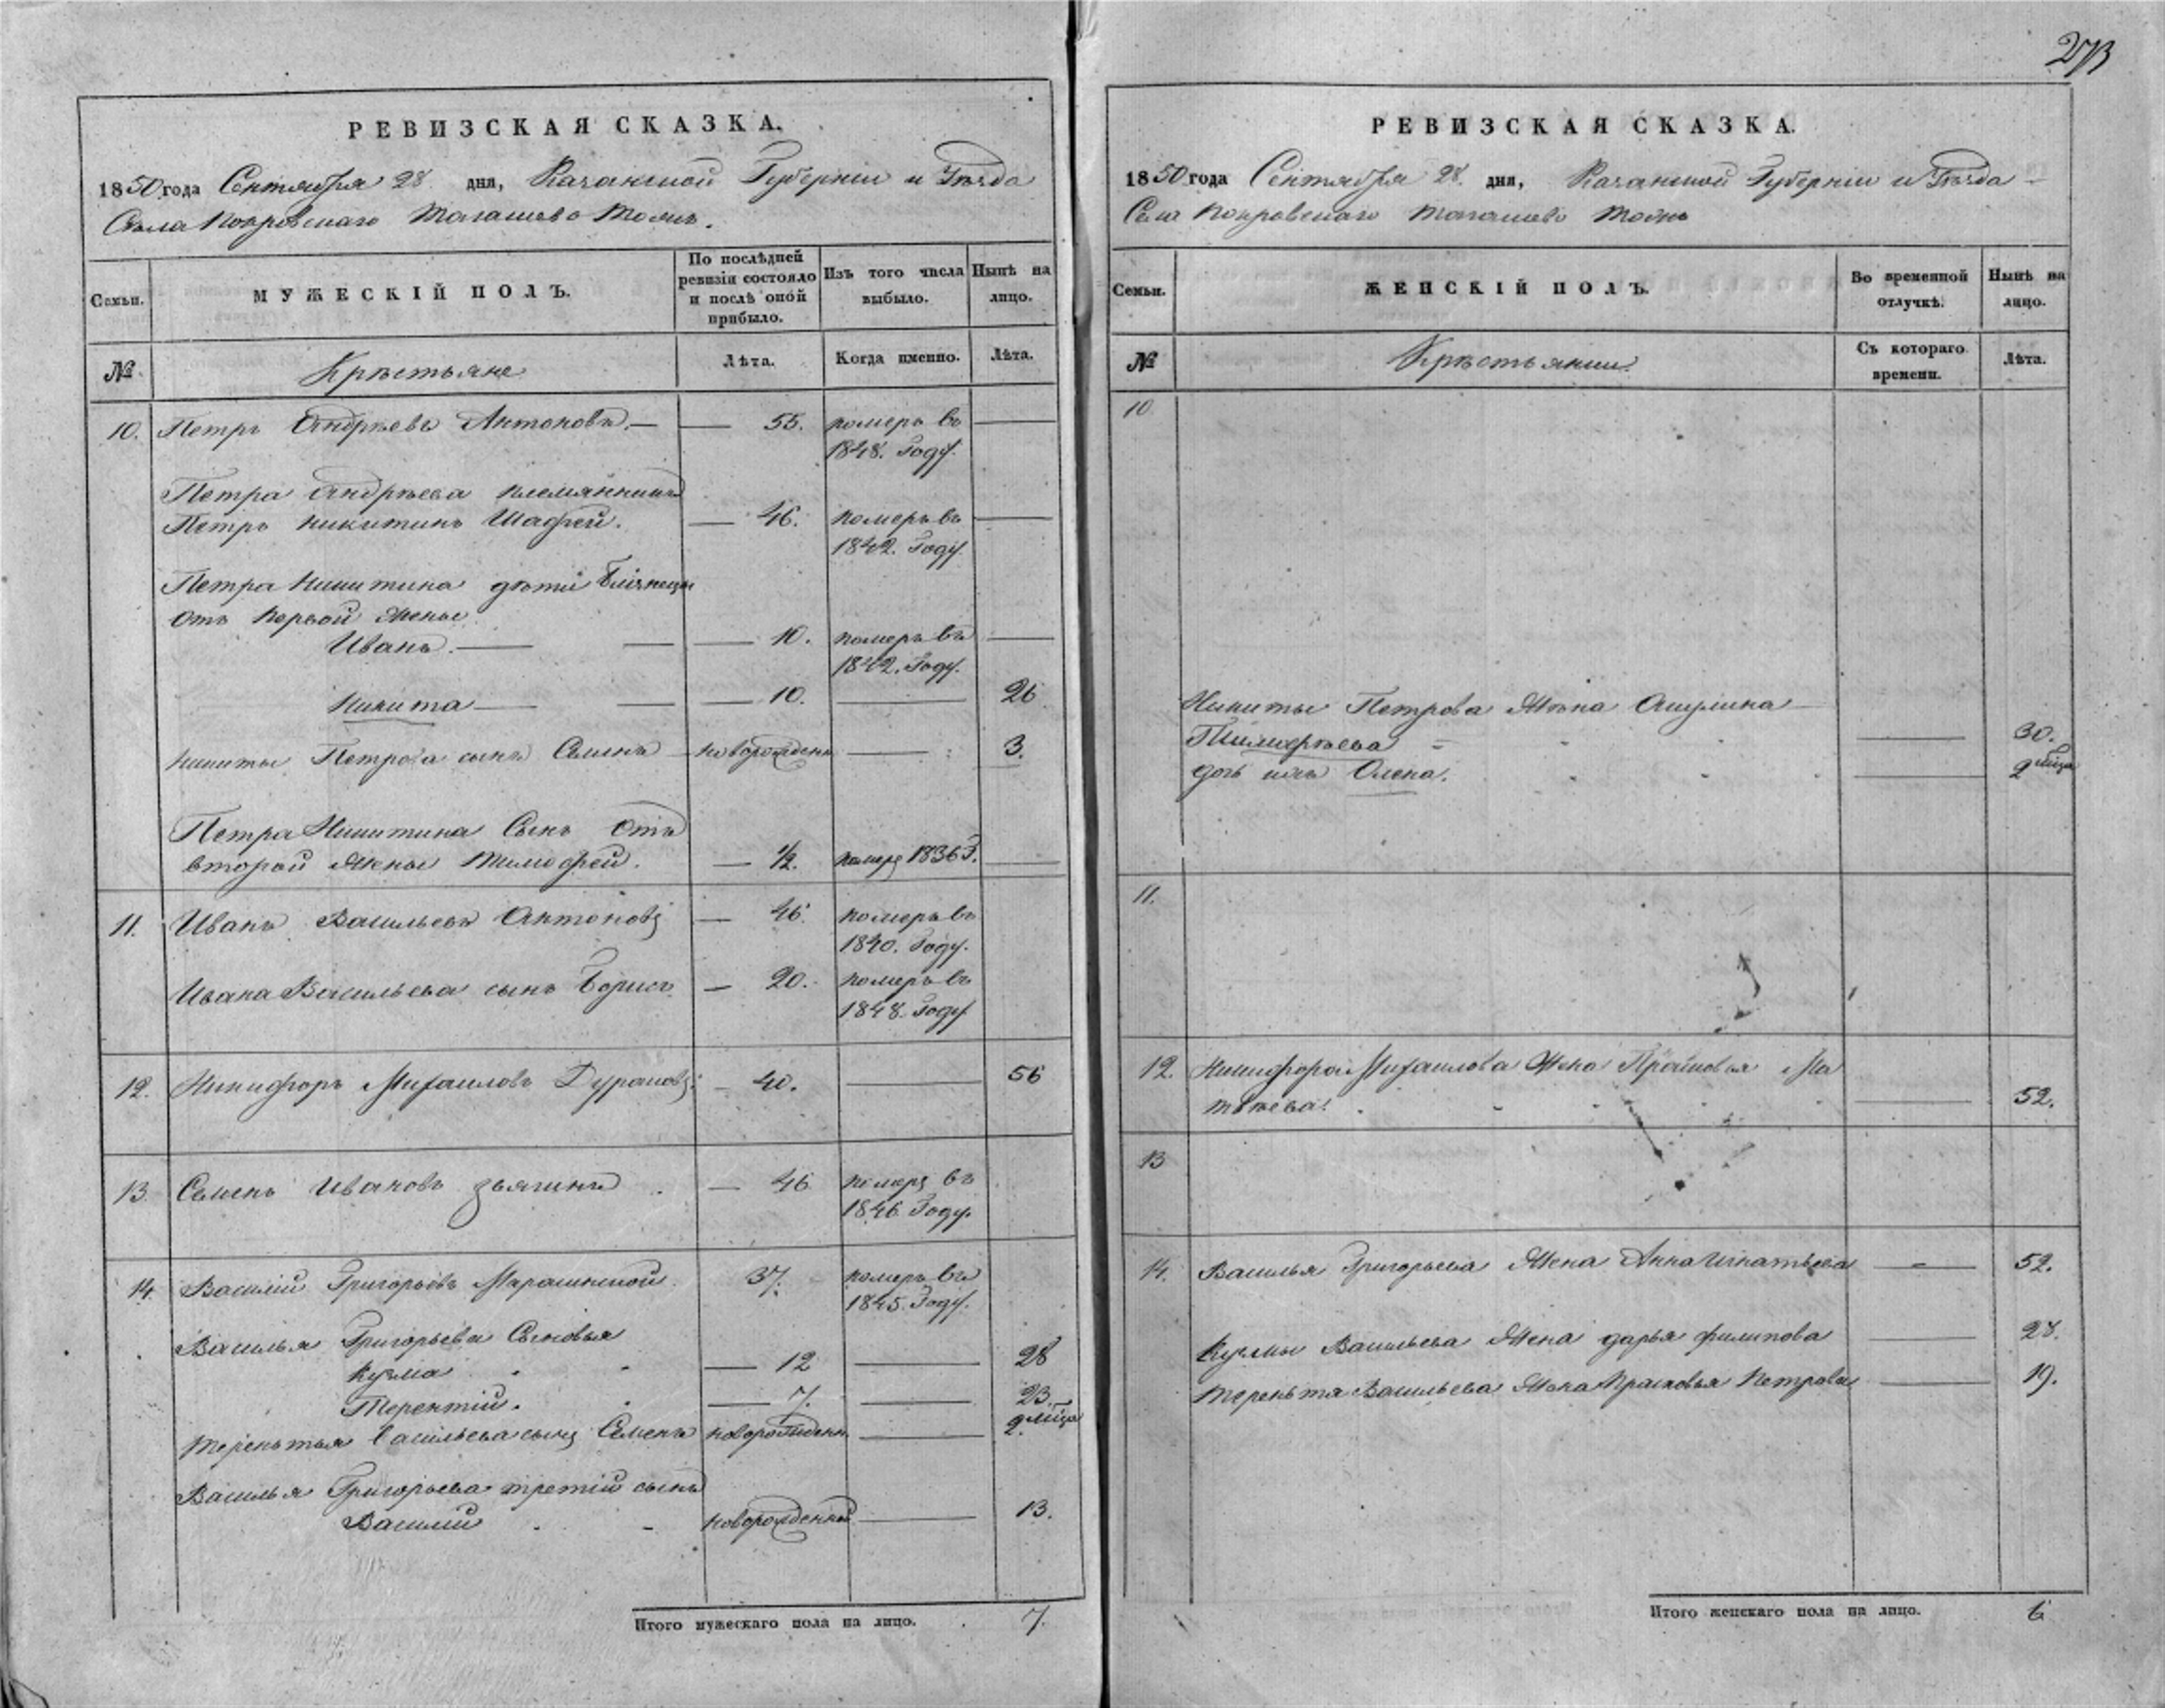 273
РЕВИЗСКАЯ СКАЗКА.
1850 года Сентября 28 дня, Казанской Губерніи и Уѣзда
Села Покровскаго тожъ.
Семьи.
МУЖЕСКІЙ ПОЛЪ.
По послѣдней ревизіи состояло и послѣ оной прибыло.
Изъ того числа выбыло.
Нынѣ на лицо.
№.
Крѣстьяне
Лѣта.
Когда именно.
Лѣта.
10. Петръ Андрѣевъ Антоновъ.— — 55. померъ въ —
1848. Году.
Петра Андрѣева племянникъ
Петръ Никитинъ — 46. померъ въ —
1842. Году.
Петра Никитина дѣти близнецы
отъ первой жены
Иванъ. — — — 10. померъ въ —
1842. Году.
Никита — — — 10. — 26
Никиты Петрова сынъ Семенъ новорожденъ — 3.
Петра Никитина Сынъ отъ
второй жены Тимофей. — ½. померъ 1836 Г. —
11. Иванъ Васильевъ Антоновъ — 46. померъ въ
1840. Году.
Ивана Васильева сынъ Борисъ — 20. померъ въ
1848. Году
12. Никифоръ Михаиловъ — 40. — 56
13. Семенъ Ивановъ — 46 померъ въ
1846 Году.
14. Василій Григорьевъ 37. померъ въ
1845. Году.
Василья Григорьева Сыновья
Кузма — 12 — 28
Терентій. — 7. — 23.
Терентья Васильева сынъ Семенъ новорожденъ — 2. мѣца
Василья Григорьева третій сынъ
Василій новорожденной — 13.
Итого мужескаго пола на лицо. 7.
РЕВИЗСКАЯ СКАЗКА.
1850 года Сентября 28. дня, Казанской Губерніи и Уѣзда
Села Покровскаго тожъ
Семьи.
ЖЕНСКІЙ ПОЛЪ.
Во временной отлучкѣ.
Нынѣ на лицо.
№
Крѣстьянки.
Съ котораго времени.
Лѣта.
10
Никиты Петрова Жена Акулина
— 30.
дочь ихъ Олена. — 2 мѣца
11.
12. Никифора Михаилова Жена Прасковья Ма
твѣева. — 52.
13
14. Василья Григорьева Жена Анна Игнатьева — 52.
Кузмы Васильева Жена дарья филипова — 28.
Терентья Васильева Жена Прасковья Петрова — 19.
Итого женскаго пола на лицо. 6